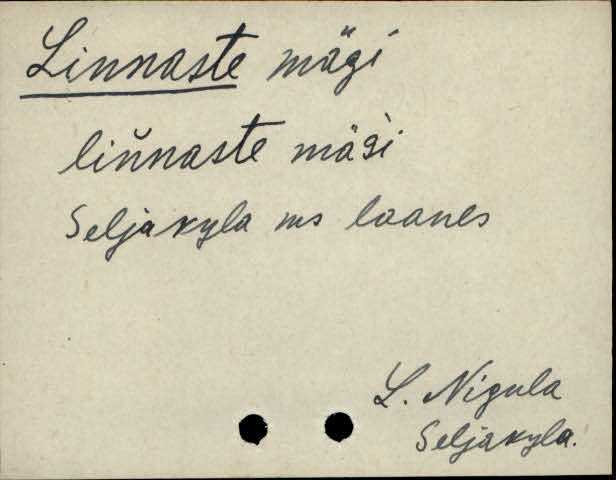 Linnaste mägi
liňnaste mäGi
Seljakyla ms laanes
L. Nigula
Seljakyla.